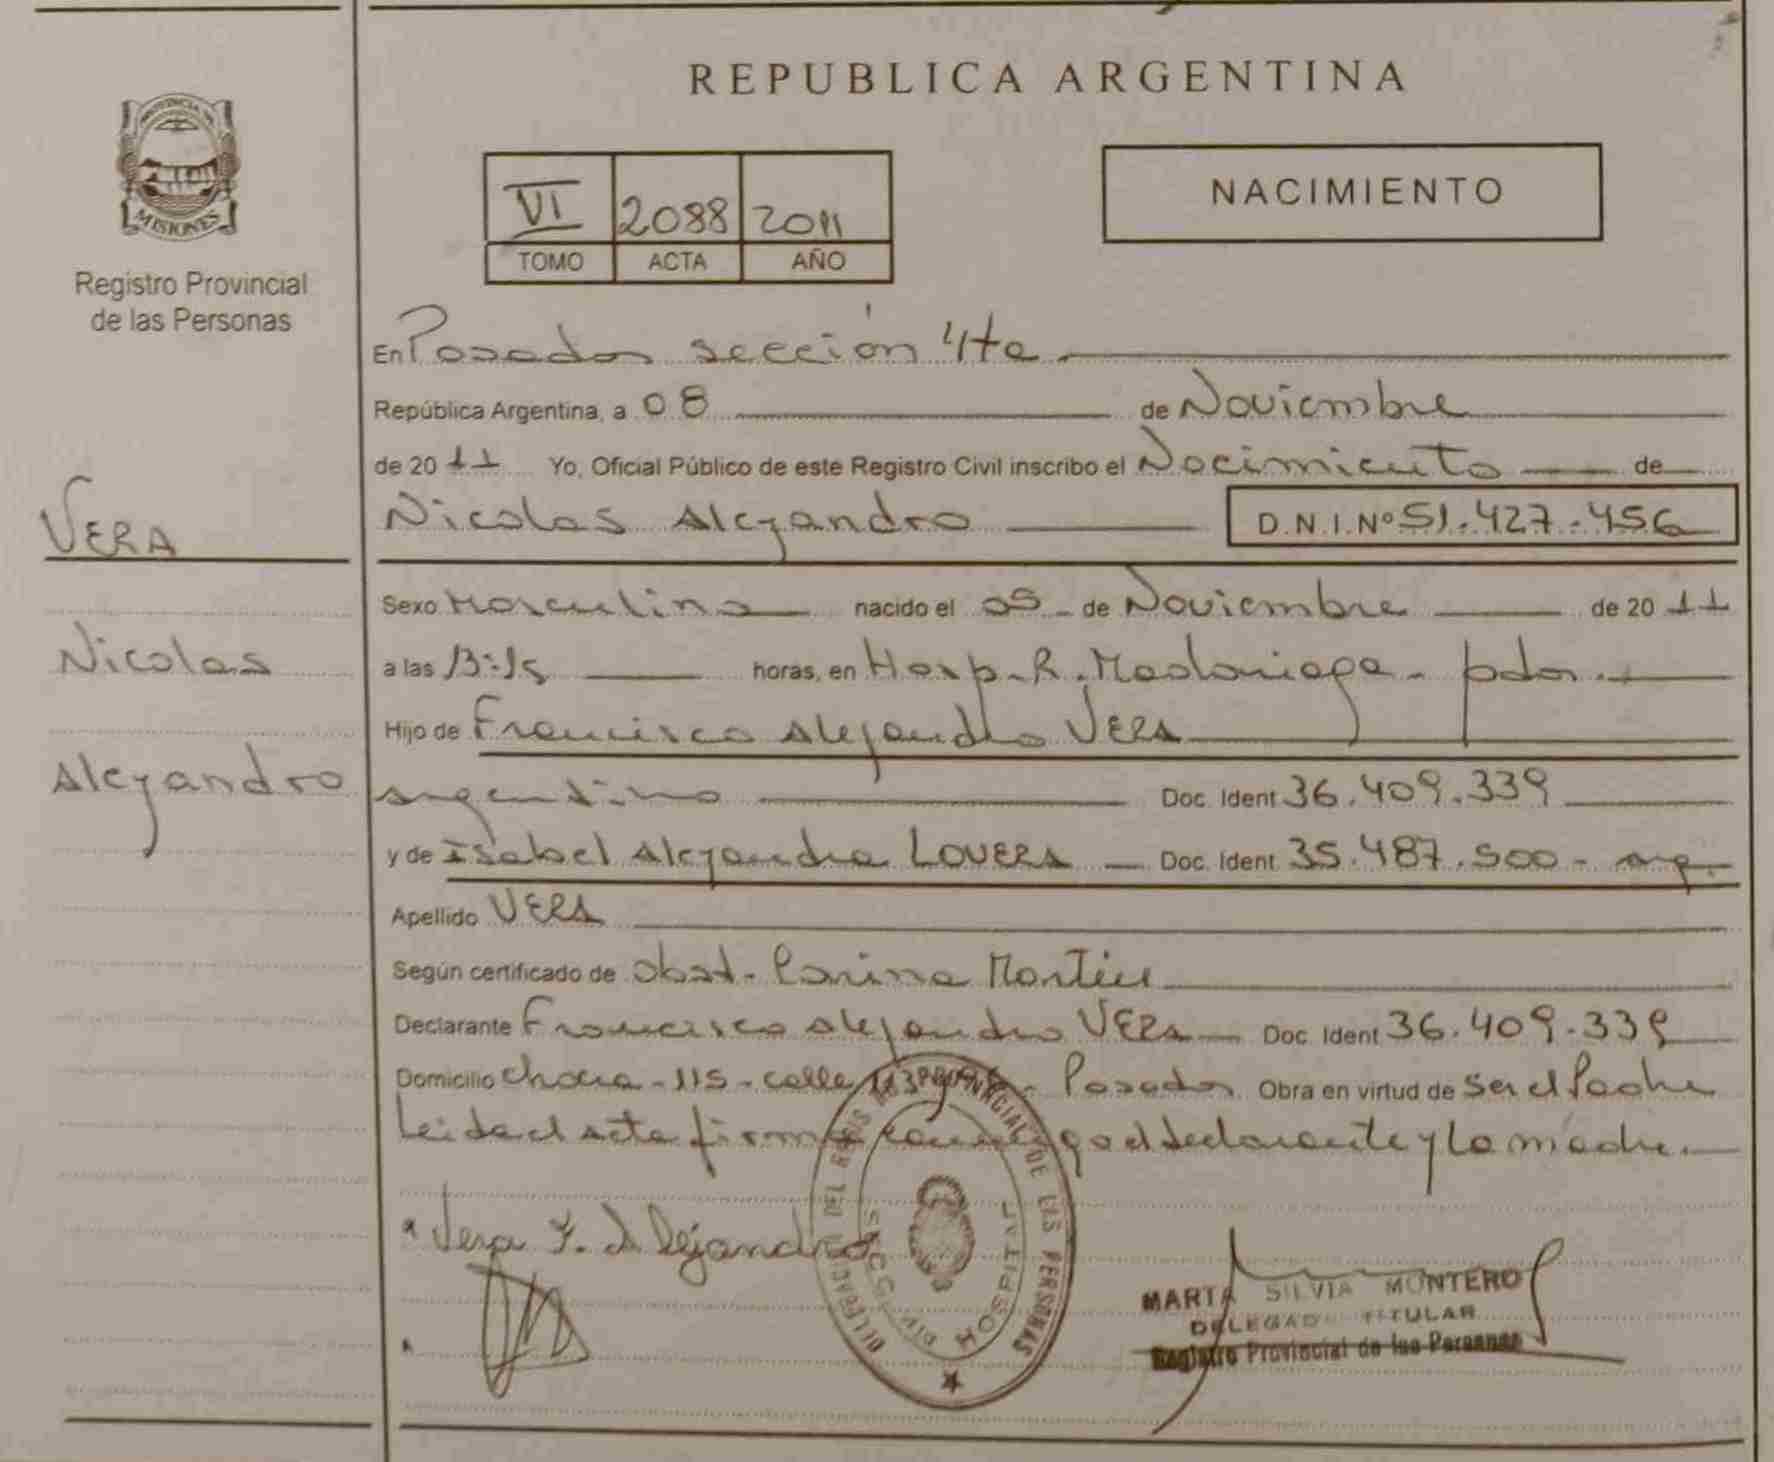 PROVINCIA DE
MISIONES
Registro Provincial
de las Personas
VERA
Nicolas
Alejandro
REPUBLICA ARGENTINA
VI 2088 2011
TOMO ACTA AÑO
NACIMIENTO
En Posadas sección 4ta
República Argentina, a 08 de Noviembre
de 2011 Yo, Oficial Público de este Registro Civil inscribo el Nacimiento de
Nicolas Alejandro D.N.I.Nº 51.427.456
Sexo Masculino nacido el 05 de Noviembre de 2011
a las 13:15 horas, en Hosp. R. Madariaga - pdas.
Hijo de Francisco Alejandro VERA
argentino Doc. Ident 36.409.339
y de Isabel Alejandra LOVERA Doc. Ident. 35.487.500 - arg.
Apellido VERA
Según certificado de obst. Carina
Declarante Francisco Alejandro VERA Doc. Ident 36.409.339
Domicilio chacra - 115 - calle Posadas Obra en virtud de Ser el Padre
Leida el acta firma conmigo el declarante y la madre.
Vera F. Alejandro
DELEGACION DEL REGISTRO PROVINCIAL DE LAS PERSONAS
HOSPITAL
MARTA SILVIA MONTERO
DELEGADO TITULAR
Registro Provincial de las Personas